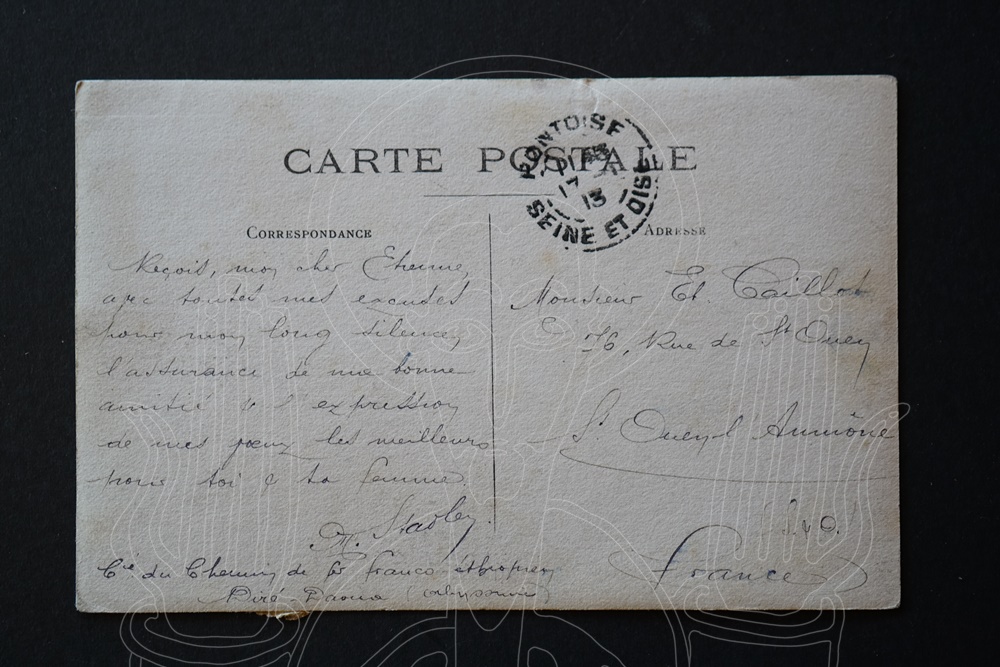 CARTE POSTALE
PONTOISE
17
13
SEINE ET OISE
CORRESPONDANCE
Reçois, mon cher Etienne,
avec toutes mes excuses
pour mon long silence,
l'assurance de ma bonne
amitié & l'expression
de mes vœux les meilleurs
pour toi & ta femme.
Cie du Chemin de fer franco-éthiopien
Diré Daoua (Abyssinie)
ADRESSE
Monsieur Et. Caillot
76, Rue de St Ouen
St Ouen l'Aumône
S. & O.
France